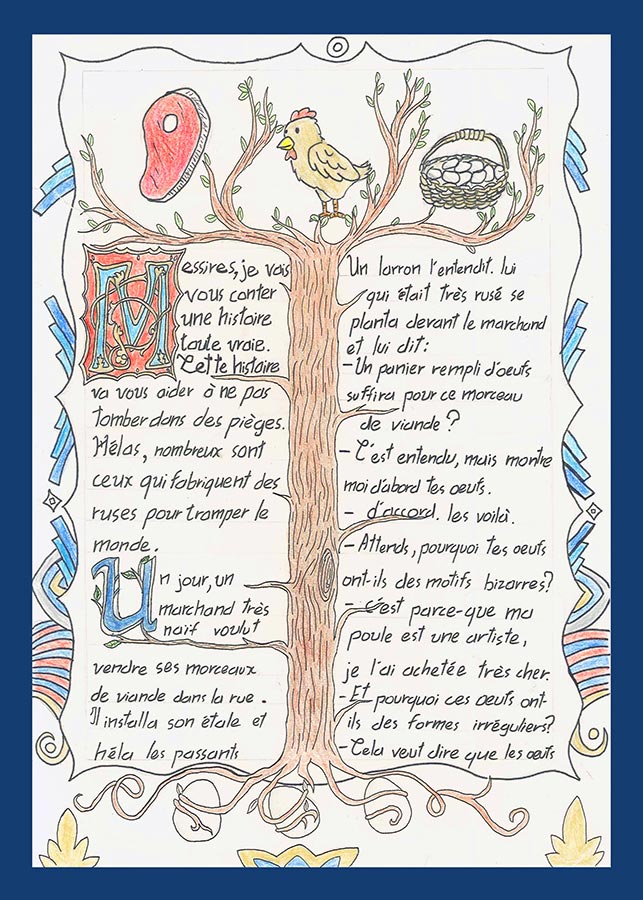 Messires, je vais
vous conter
une histoire
toute vraie.
Cette histoire
va vous aider à ne pas
tomber dans des pièges.
Hélas, nombreux sont
ceux qui fabriquent des
ruses pour tromper le
monde.
Un jour, un
marchand très
naïf voulut
vendre ses morceaux
de viande dans la rue.
Il installa son étale et
héla les passants
Un larron l'entendit. lui
qui était très rusé se
planta devant le marchand
et lui dit:
-Un panier rempli d'oeufs
suffira pour ce morceau
de viande ?
- C'est entendu, mais montre
moi d'abord tes oeufs.
- d'accord. les voilà.
-Attends, pourquoi tes oeufs
ont-ils des motifs bizarres?
- c'est parce-que ma
poule est une artiste,
je l'ai achetée très cher.
-Et pourquoi ces oeufs ont-
ils des formes irréguliers?
-Cela veut dire que les oeufs